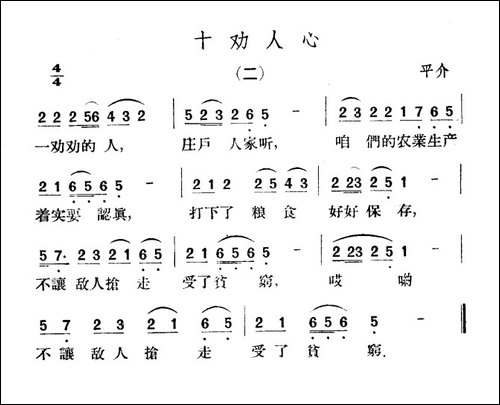 十劝人心
4/4 (二) 平介
2 2 2 56 4 3 2 | 5 2 3 2 6 5 - | 2 3 2 2 1 7 6 5
一劝劝的人, 庄戶人家听, 咱們的农業生产
2 1 6 5 6 5 - | 2 1 2 2 5 4 3 | 2 23 2 5 1 -
着实要認眞, 打下了粮食 好好保存,
5 7· 2 3 2 1 6 5 | 2 1 6 5 6 5 - | 2 23 2 5 1 -
不讓敌人搶走 受了貧窮, 哎喲
5 7 2 3 2 1 6 5 | 2 1 6 5 6 5 -
不讓敌人搶走 受了貧窮.